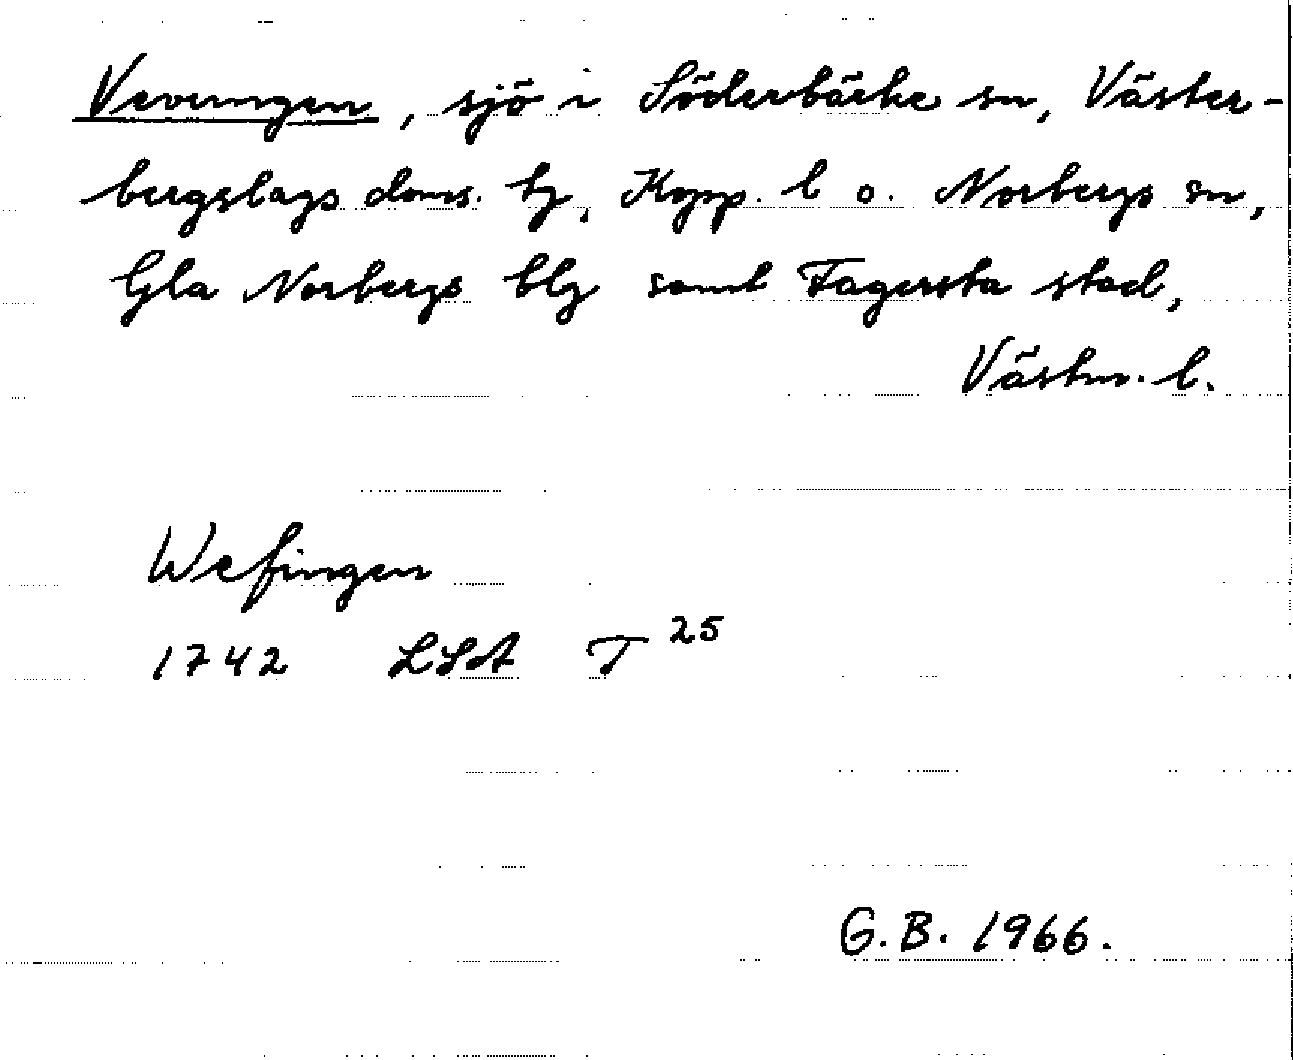 Vevungen, sjö i Söderbärke sn, Väster-
bergslags doms. hj, Kopp. l o. Norbergs sn,
Gla Norbergs blg samt Fagersta stad,
Västm. l.
Wefingen
1742 LSA T 25
G.B. 1966.